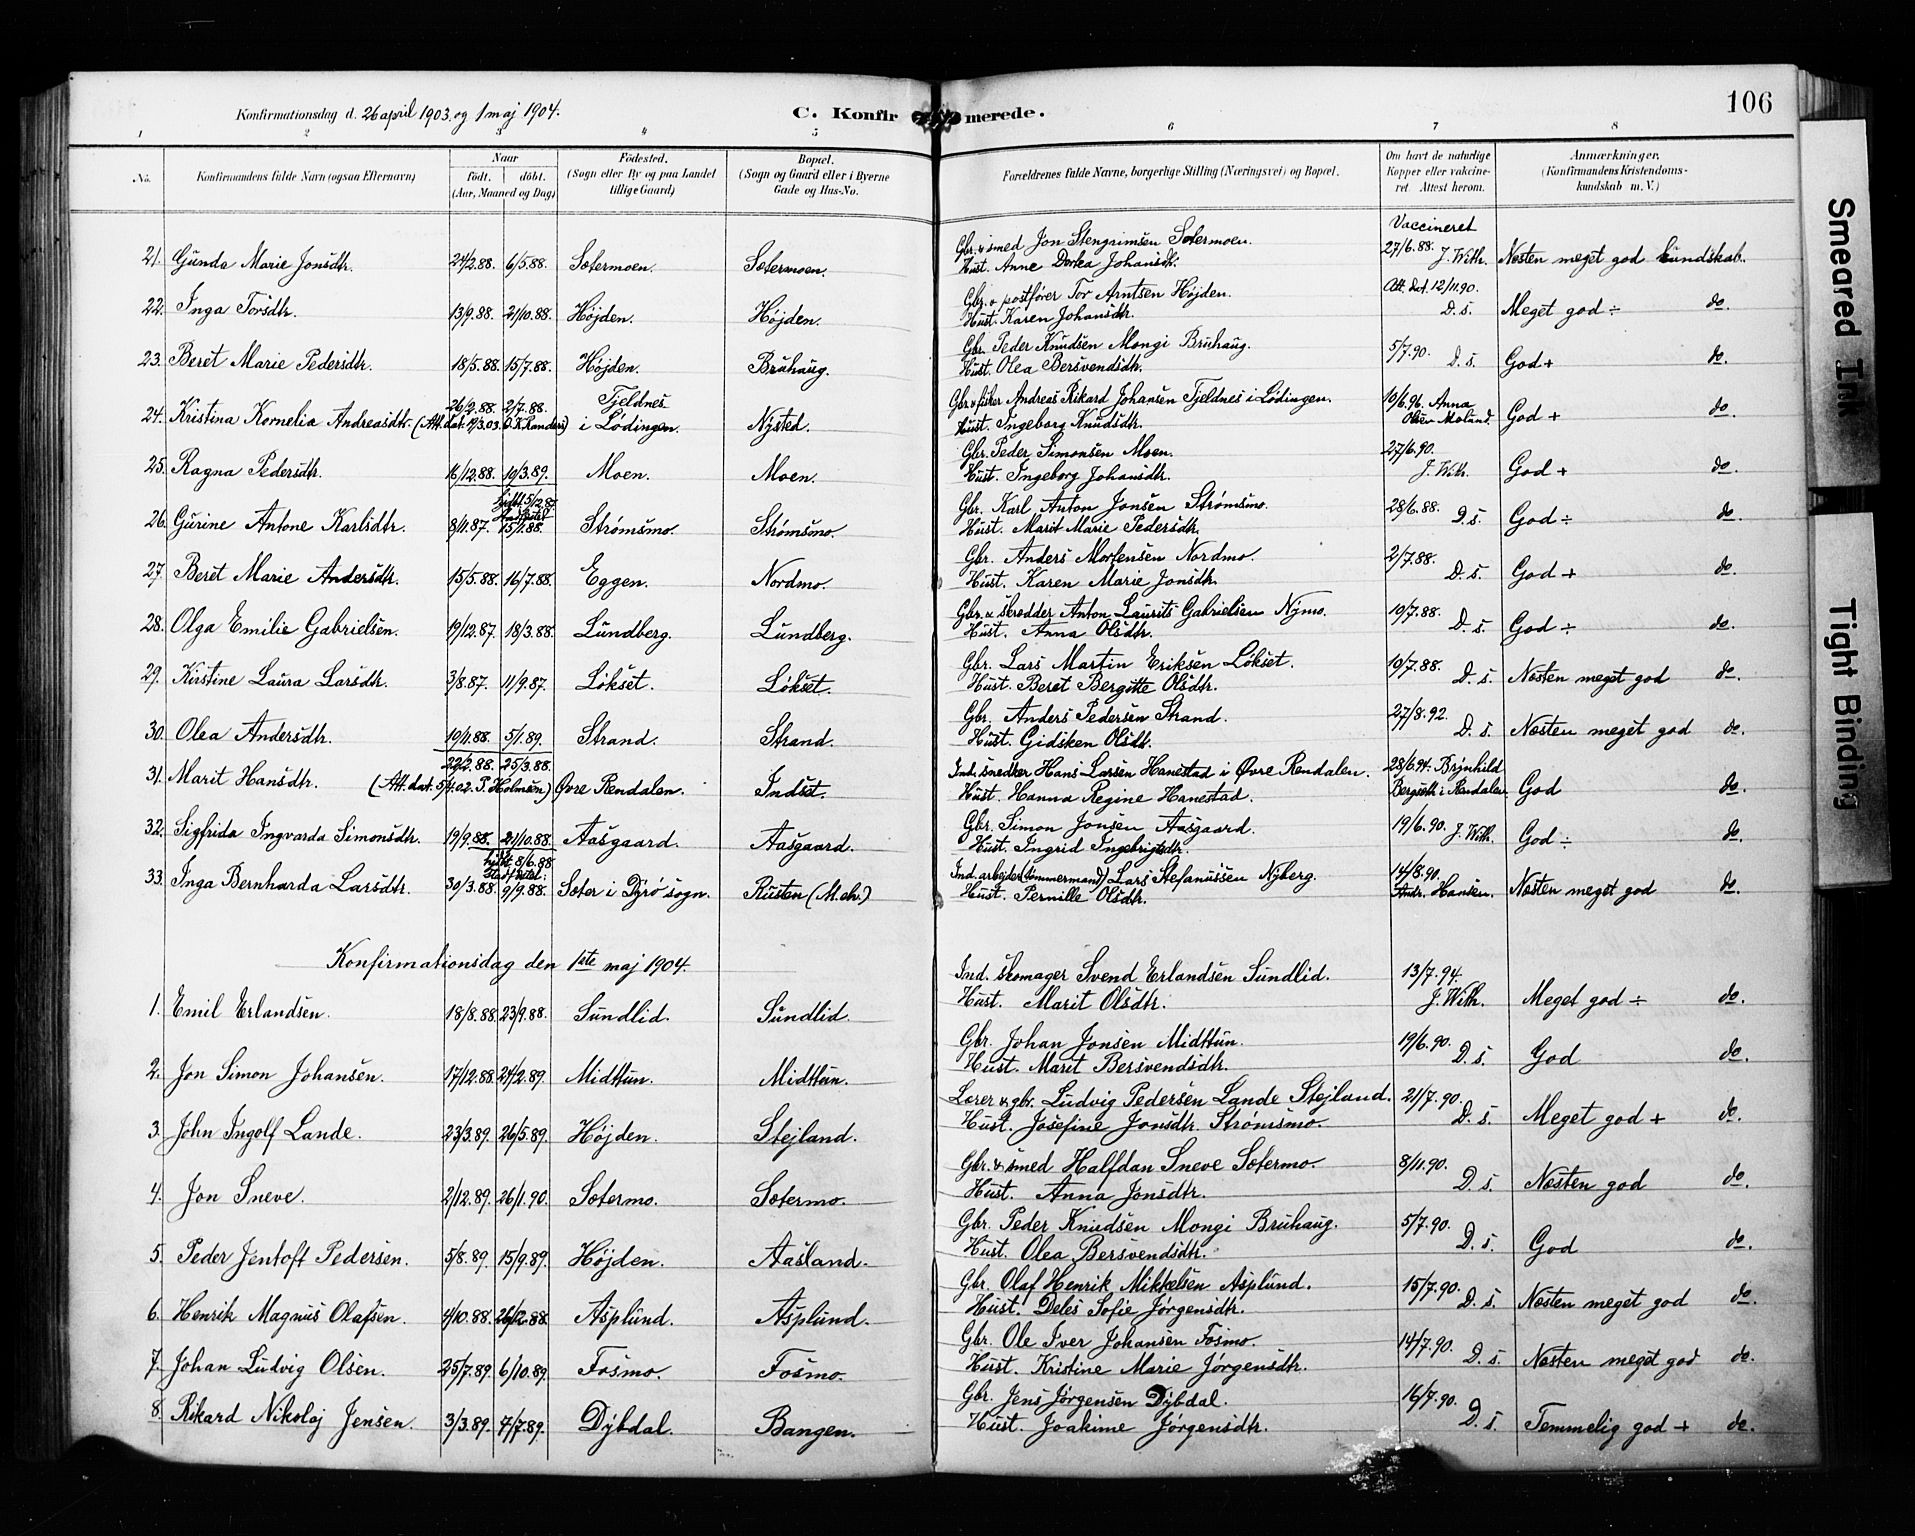 Konfirmationsdag d. 26 april 1903 og 1 maj 1904.
C. Konfirmerede.
106
1 2 3 4 5 6 7 8
No.
Konfirmandens fulde Navn (ogsaa Efternavn)
Naar
født. døbt.
(Aar, Maaned og Dag)
Fødested.
(Sogn eller By og paa Landet
tillige Gaard)
Bopæl.
(Sogn og Gaard eller i Byerne
Gade og Hus-No.
Forældrenes fulde Navne, borgerlige Stilling (Næringsvei) og Bopæl.
Om havt de naturlige
Kopper eller vakcine-
ret. Attest herom.
Anmærkninger.
(Konfirmandens Kristendoms-
kundskab m. V.)
Vaccineret
21. Gunda Marie Jonsdtr. 24/2.88. 6/5.88. Sætermoen. Sætermoen. Gbr. & smed Jon Stengrimsen Sætermoen. 27/6.88. J. With. Næsten meget god kundskab.
Hust. Anne Dortea Johansdtr.
22. Inga Torsdtr. 13/9.88. 21/10.88. Højden. Højden. Gbr. & postfører Tor Arntsen Højden. Att. dat. 12/11.90. D. s. Meget god ÷ do.
Hust. Karen Johansdtr.
23. Beret Marie Pedersdtr. 18/5.88. 15/7.88. Højden. Bruhaug. Gbr. Peder Knudsen Mongi Bruhaug. 5/7.90. D. s. God + do.
Hust. Olea Bersvendsdtr.
24. Kristina Kornelia Andreasdtr. (Att. dat. 14/3.03. O. K. Randers) 26/2.88. 2/7.88. Fjeldnes i Lødingen. Nysted. Gbr. & fisker Andreas Rikard Johansen Fjeldnes i Lødingen. 10/6.96. Anna Olsen Moland. God + do.
Hust. Ingeborg Knudsdtr.
25. Ragna Pedersdtr. 16/12.88. 10/3.89. Moen. Moen. Gbr. Peder Simonsen Moen. 27/6.90. J. With. God + do.
Hust. Ingeborg Johansdtr.
26. Gurine Antone Karlsdtr. 8/11.87. hjdbt. 5/12.87. Stadfæstet 15/1.88. Strømsmo. Strømsmo. Gbr. Karl Anton Jonsen Strømsmo. 28/6.88. D. s. God ÷ do.
Hust. Marit Marie Pedersdtr.
27. Beret Marie Andersdtr. 15/5.88. 16/7.88. Eggen. Nordmo. Gbr. Anders Mortensen Nordmo. 2/7.88. D. s. God + do.
Hust. Karen Marie Jonsdtr.
28. Olga Emilie Gabrielsen. 19/12.87. 18/3.88. Lundberg. Lundberg. Gbr. & skredder Anton Laurits Gabrielsen Nymo. 19/7.88. D. s. God ÷ do.
Hust. Anna Olsdtr.
29. Kirstine Laura Larsdtr. 3/8.87. 11/9.87. Løkset. Løkset. Gbr. Lars Martin Eriksen Løkset. 10/7.88. D. s. Næsten meget god do.
Hust. Beret Bergitte Olsdtr.
30. Olea Andersdtr. 19/11.88. 5/1.89. Strand. Strand. Gbr. Anders Pedersen Strand. 27/8.92. D. s. Næsten meget god do.
Hust. Gidsken Olsdt.
31. Marit Hansdtr. (Att. dat. 5/4.02. P. Holmsen) 22/2.88. 25/3.88. Øvre Rendalen. Indset. Ind. snedker Hans Larsen Hanestad i Øvre Rendalen. 28/6.94. Brynhild Bergseth i Rendalen. God do.
Hust. Hanna Regine Hanestad.
32. Sigfrida Ingvarda Simonsdtr. 19/9.88. 21/10.88. Aasgaard. Aasgaard. Gbr. Simon Jonsen Aasgaard. 19/6.90. J. With. God ÷ do.
Hust. Ingrid Ingebrigtsdtr.
33. Inga Bernharda Larsdtr. 30/3.88. hjdbt. 8/6.88. Stadfæstet: 9/9.88. Sæter i Dyrø sogn. Rusten (M. elv.) Ind. arbejder (tømmermand) Lars Stefanussen Nyberg. 14/8.90. Andr. Hansen. Næsten meget god do.
Hust. Pernille Olsdtr.
Konfirmationsdag den 1ste maj 1904.
1. Emil Erlandsen. 18/8.88. 23/9.88. Sundlid. Sundlid. Ind. skomager Svend Erlandsen Sundlid. 13/7.94. J. With. Meget god ÷ do.
Hust. Marit Olsdtr.
2. Jon Simon Johansen. 17/12.88. 24/2.89. Midttun. Midttun. Gbr. Johan Jonsen Midttun. 19/6.90. D. s. God do.
Hust. Marit Bersvendsdtr.
3. John Ingolf Lande. 23/3.89. 26/5.89. Højden. Stejland. Lærer & gbr. Ludvig Pedersen Lande Stejland. 21/7.90. D. s. Meget god + do.
Hust. Josefine Jonsdtr. Strømsmo.
4. Jon Sneve. 2/12.89. 26/1.90. Sætermo. Sætermo. Gbr. & smed Halfdan Sneve Sætermo. 8/11.90. D. s. Næsten god do.
Hust. Anna Jonsdtr.
5. Peder Jentoft Pedersen. 5/8.89. 15/9.89. Højden. Aasland. Gbr. Peder Knudsen Mongi Bruhaug. 5/7.90. D. s. God do.
Hust. Olea Bersvendsdtr.
6. Henrik Magnus Olafsen. 4/10.88. 26/12.88. Asplund. Asplund. Gbr. Olaf Henrik Mikkelsen Asplund. 15/7.90. D. s. Næsten meget god do.
Hust. Deles Sofie Jørgensdtr.
7. Johan Ludvig Olsen. 25/7.89. 6/10.89. Fosmo. Fosmo. Gbr. Ole Iver Johansen Fosmo. 14/7.90. D. s. Næsten meget god do.
Hust. Kristine Marie Jørgensdtr.
8. Rikard Nikolaj Jensen. 3/3.89. 7/7.89. Dybdal. Bangen. Gbr. Jens Jørgensen Dybdal. 16/7.90. D. s. Temmelig god + do.
Hust. Joakime Jørgensdtr.
Smeared Ink
Tight Binding